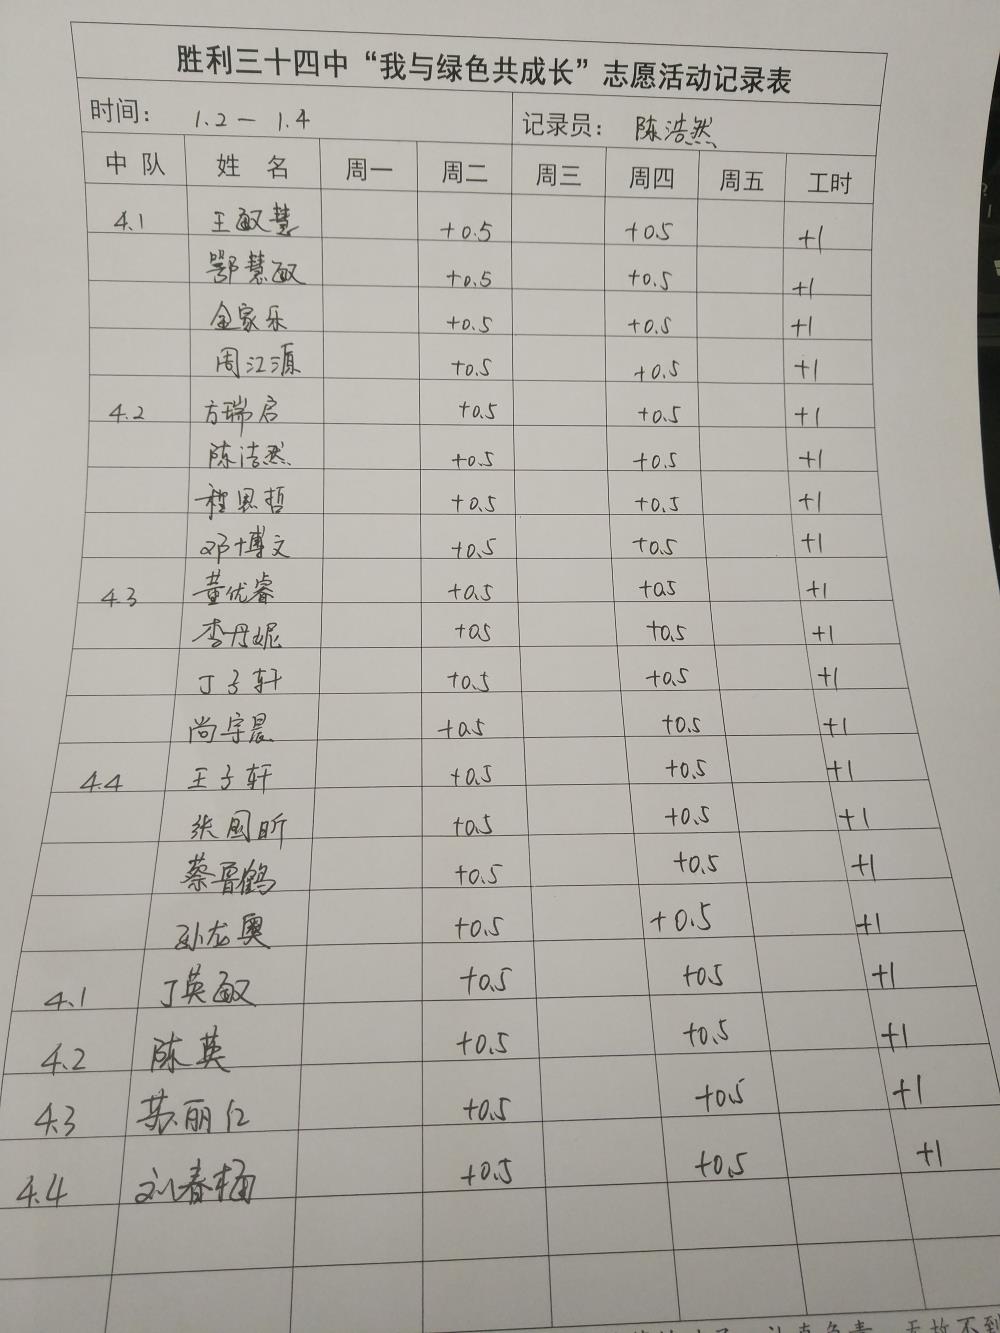 胜利三十四中“我与绿色共成长”志愿活动记录表
时间： 1.2 — 1.4 记录员： 陈浩然
中队 姓名 周一 周二 周三 周四 周五 工时
4.1 王敏慧 +0.5 +0.5 +1
鄂慧敏 +0.5 +0.5 +1
金家乐 +0.5 +0.5 +1
周江源 +0.5 +0.5 +1
4.2 方瑞启 +0.5 +0.5 +1
陈浩然 +0.5 +0.5 +1
程思哲 +0.5 +0.5 +1
邓博文 +0.5 +0.5 +1
4.3 董优睿 +0.5 +0.5 +1
李丹妮 +0.5 +0.5 +1
丁子轩 +0.5 +0.5 +1
尚宇晨 +0.5 +0.5 +1
4.4 王子轩 +0.5 +0.5 +1
张国昕 +0.5 +0.5 +1
蔡鲁鹤 +0.5 +0.5 +1
孙龙奥 +0.5 +0.5 +1
4.1 丁英敏 +0.5 +0.5 +1
4.2 陈英 +0.5 +0.5 +1
4.3 苏丽仁 +0.5 +0.5 +1
4.4 刘春梅 +0.5 +0.5 +1
认真负责，无故不到